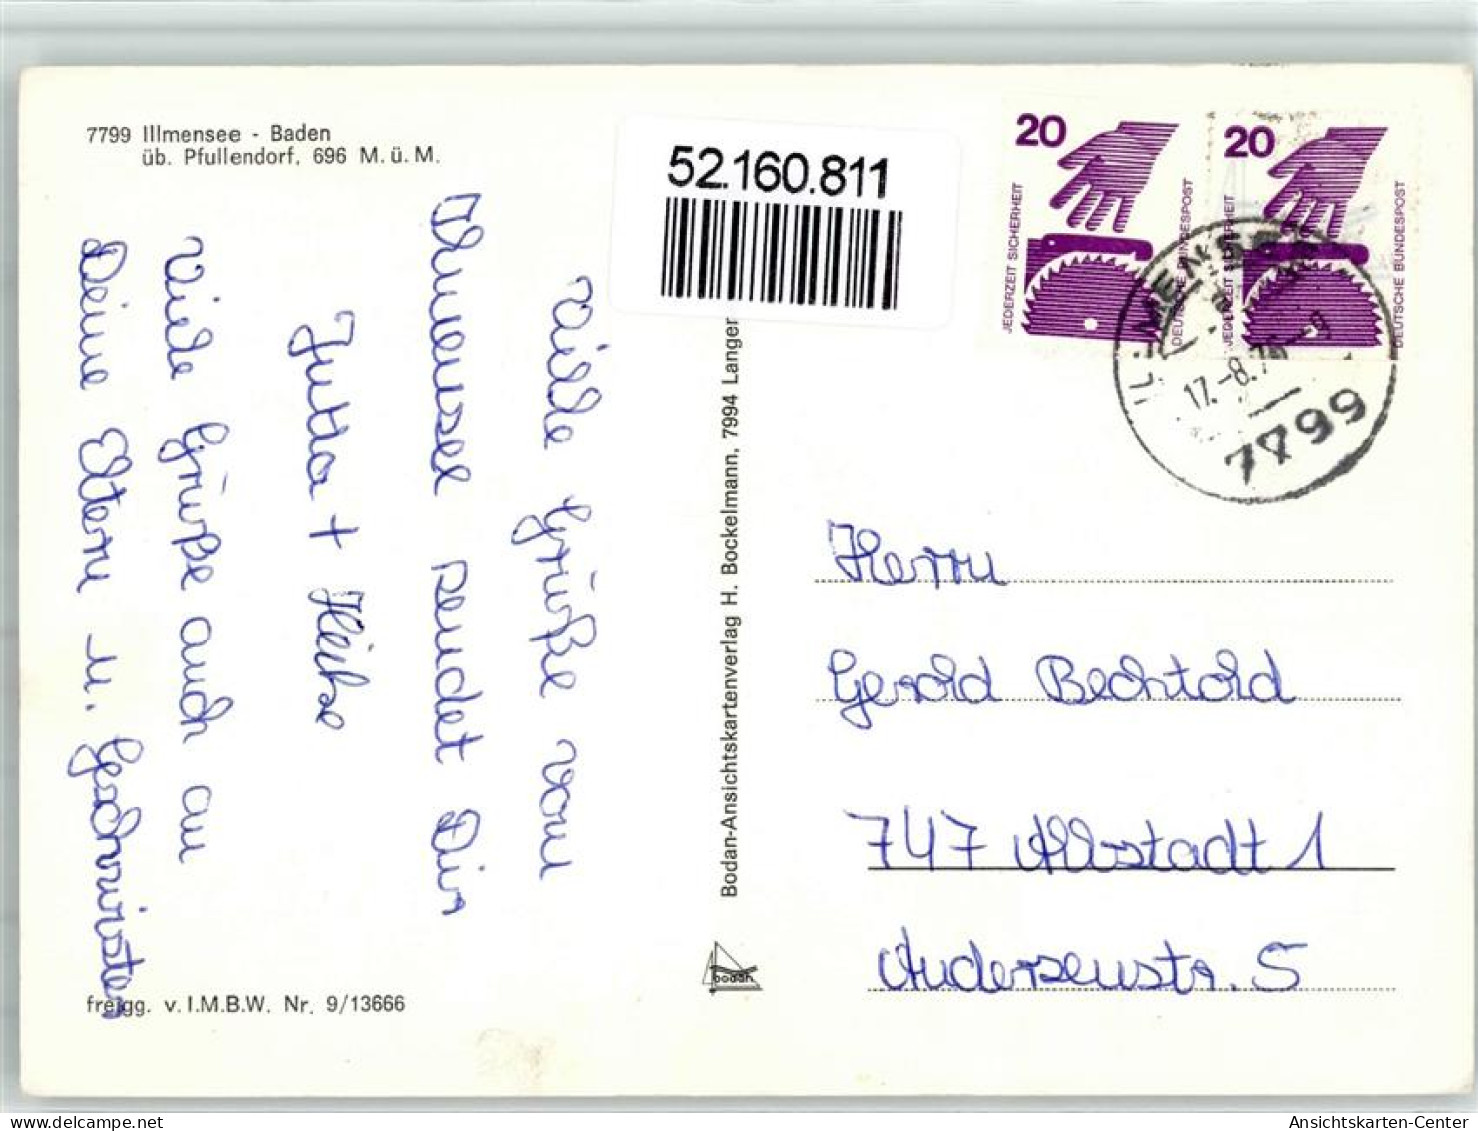 7799 Illmensee - Baden
üb. Pfullendorf, 696 M. ü. M.
52.160.811
20
JEDERZEIT SICHERHEIT
DEUTSCHE BUNDESPOST
20
JEDERZEIT SICHERHEIT
DEUTSCHE BUNDESPOST
ILLMENSEE
17.-8.76-9
7799
Viele Grüße vom
Illmensee sendet Dir
Jutta + Heike
Viele Grüße auch an
Deine Eltern u. Geschwister
Bodan-Ansichtskartenverlag H. Bockelmann, 7994 Langen
bodan
Herrn
Gerold Bechtold
747 Albstadt 1
Andersenstr. 5
freigg. v. I.M.B.W. Nr. 9/13666
oldthing.de
Ansichtskarten-Center